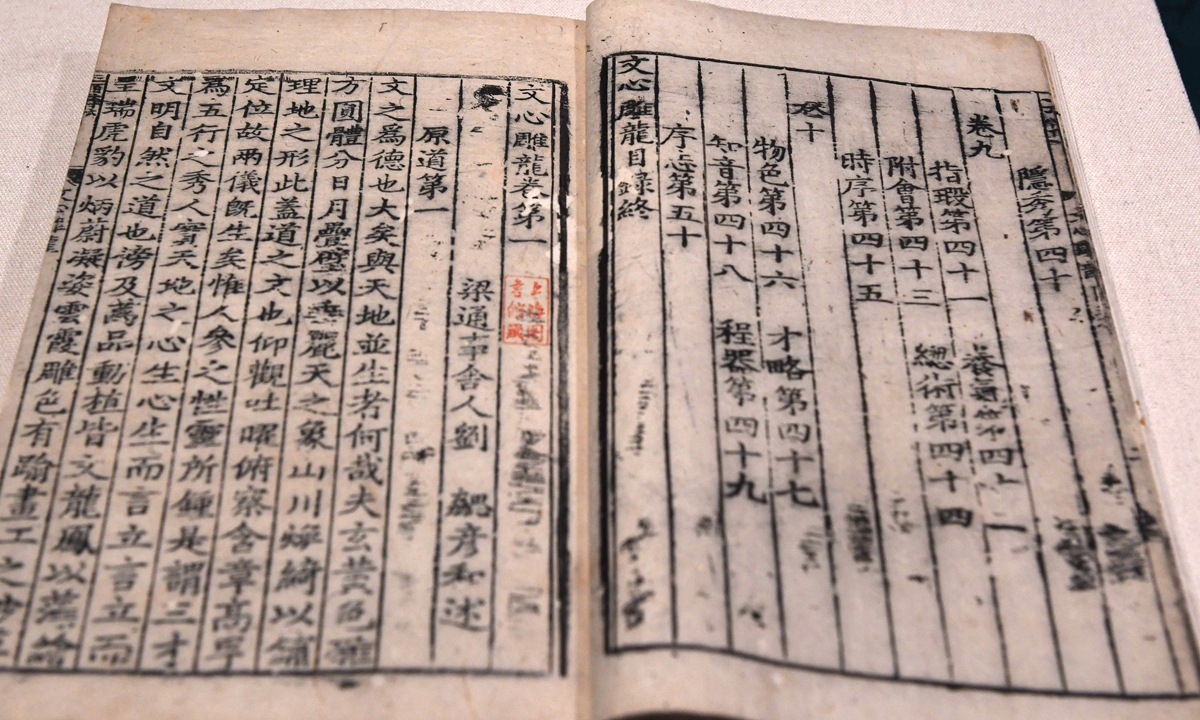 隱秀第四十
卷九
指瑕第四十一 養氣第四十二
附會第四十三 總術第四十四
時序第四十五
卷十
物色第四十六 才略第四十七
知音第四十八 程器第四十九
序志第五十
文心雕龍目錄終
文心雕龍卷第一
上海圖書館藏
梁通事舍人劉 勰彥和述
原道第一
文之爲德也大矣與天地並生者何哉夫玄黃色雜
方圓體分日月疊璧以垂麗天之象山川煥綺以鋪
理地之形此蓋道之文也仰觀吐曜俯察含章高卑
定位故兩儀旣生矣惟人參之性靈所鍾是謂三才
爲五行之秀人實天地之心生心生而言立言立而
文明自然之道也滂及萬品動植皆文龍鳳以藻繪
呈瑞虎豹以炳蔚凝姿雲霞雕色有踰畫工之妙